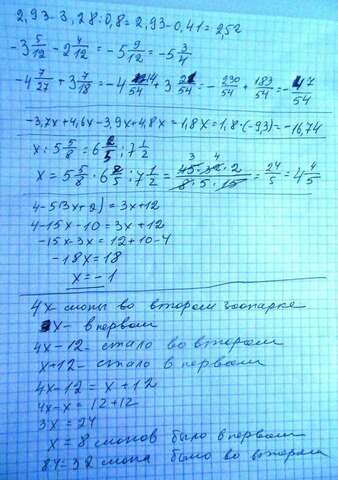 2,93-3,28:0,8=2,93-0,41=2,52
-3 5/12 - 2 4/12 = -5 9/12 = -5 3/4
-4 7/27 + 3 7/18 = -4 14/54 + 3 21/54 = -230/54 + 183/54 = -47/54
-3,7x+4,6x-3,9x+4,8x=1,8x=1,8·(-9,3)=-16,74
x:5 5/8=6 2/5:7 1/2
x=5 5/8·6 2/5:7 1/2=45·32·2/8·5·15=24/5=4 4/5
4-5(3x+2)=3x+12
4-15x-10=3x+12
-15x-3x=12+10-4
-18x=18
x=-1
4x- слоны во втором зоопарке
x- в первом
4x-12- стало во втором
x+12- стало в первом
4x-12=x+12
4x-x=12+12
3x=24
x=8 слонов было в первом
8·4=32 слона было во втором